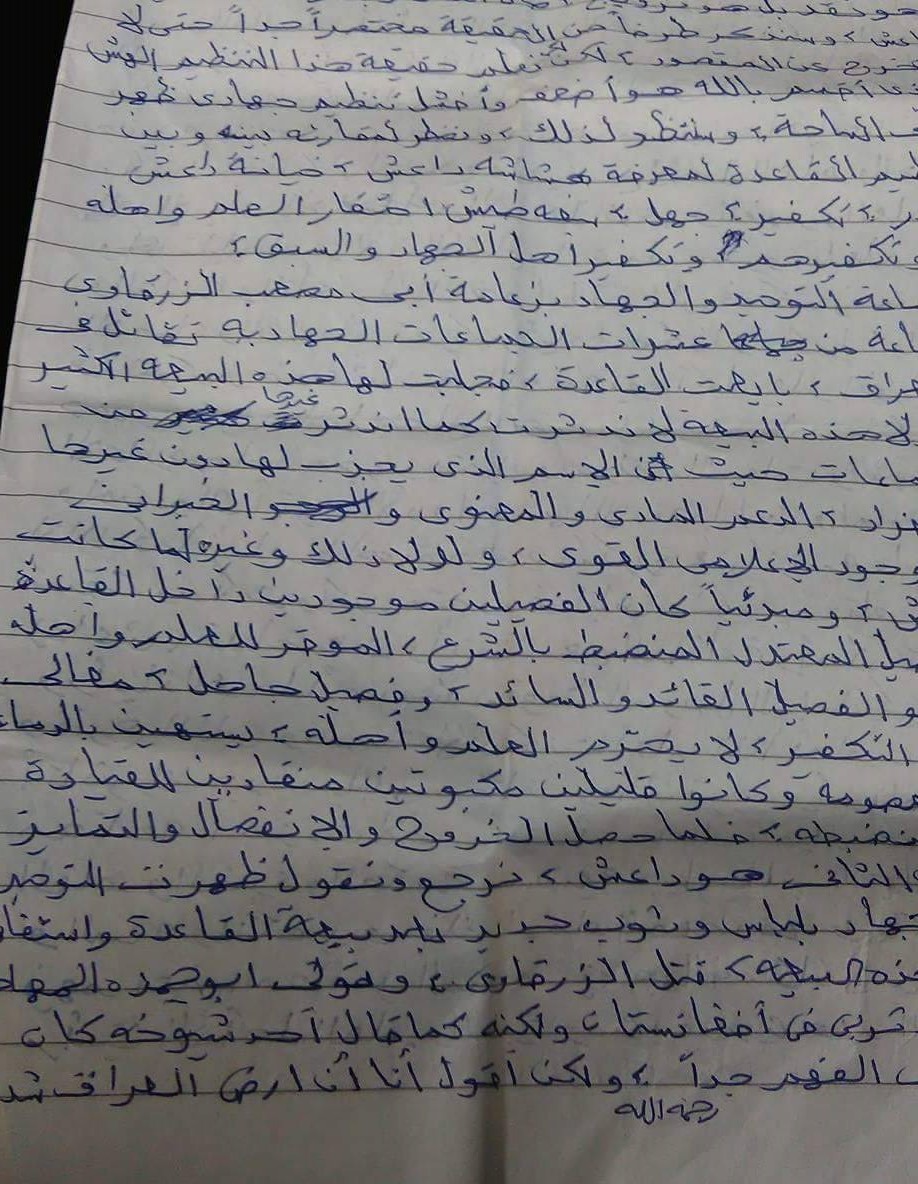 داعش، وسنذكر طرفاً من الحقيقة مختصراً جداً حتى لا
نخرج عن المقصود، لكن نعلم حقيقة هذا التنظيم الهش
أقسم بالله هو أضعف وأفشل تنظيم جهادي ظهر
الساحة، وسنظر لذلك، ونضطر لمقارنه بينه وبين
القاعدة لمعرفة هشاشه داعش، خيانة داعش
تكفير، جهل، احتقار العلم واهله
وتكفيرهم وتكفير أهل الجهاد والسبق،
التوحيد والجهاد بزعامة أبي مصعب الزرقاوي
من عشرات الجماعات الجهادية تقاتل في
بايعت القاعدة، فجلبت لها هذه البيعه الكثير
لا هذه البيعه لاندثرت كما اندثر غيرها من
حيث الإسم الذي يجذب لها دون غيرها
الدعم المادي والمعنوي و
الإعلامي القوي، ولولا ذلك وغيره لما كانت
ومبدئياً كان الفصيلين موجودين داخل القاعدة
المعتدل المنضبط بالشرع، الموقر للعلم وأهله
و الفصيل القائد والسائد، وفصيل جاهل، مغالي
التكفير، لا يحترم العلم وأهله، يستهين بالدماء
وكانوا قليلين مكبوتين منقادين للقيادة
فلما حصل الخروج والإنفصال والتمايز
الثاني هو داعش، نرجع ونقول ظهرت التوحيد
بلباس وثوب جديد بعد بيعة القاعدة
البيعه، قتل الزرقاوي، وتولى ابو حمزه المهاجر
تربى في أفغانستان ولكنه كما قال أحد شيوخه كان
الفهم جداً، ولكن أقول أنا أن ارض العراق
رحمه الله